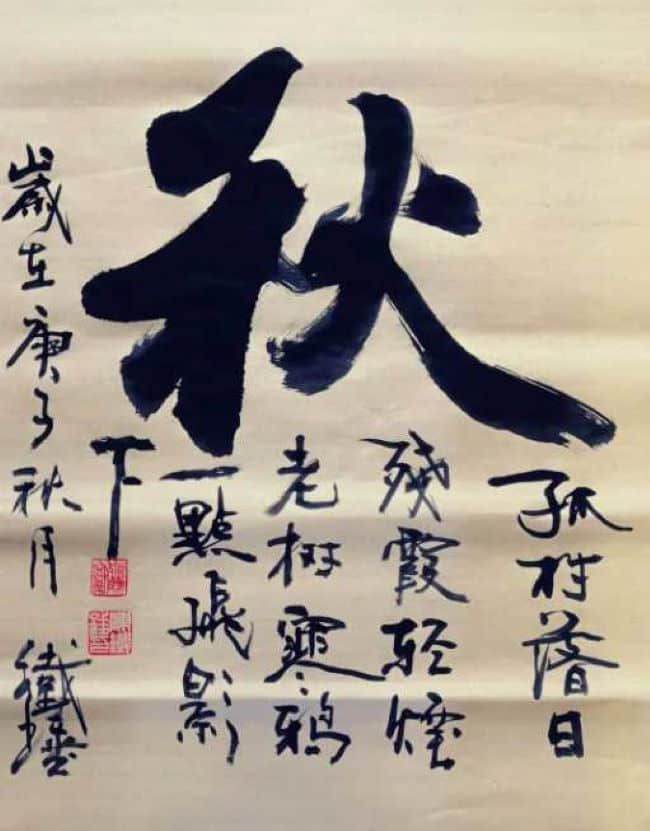 秋
孤村落日
残霞轻煙
老树寒鸦
一點飛影
下
歲在庚子秋月